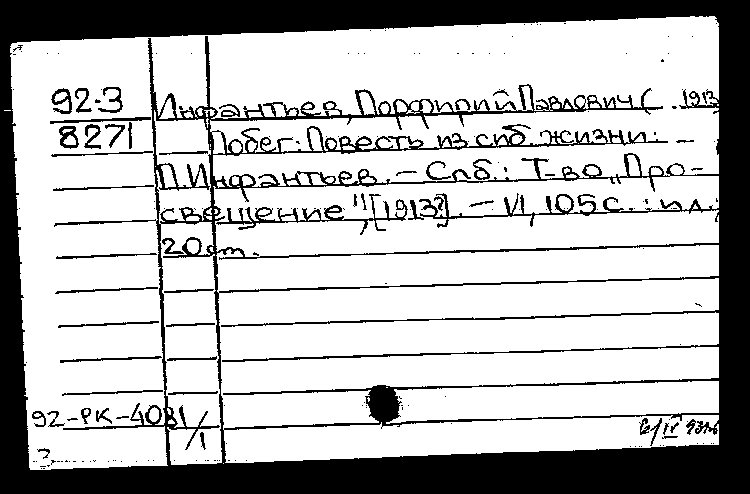 92-3
8271
Инфантьев, Порфирий Павлович ( . 1913
Побег: Повесть из спб. жизни: –
П. Инфантьев. – Спб.: Т-во „Про-
свещение", [1913?]. – VI, 105 с.: ил.;
20 см.
92-РК-4081/1